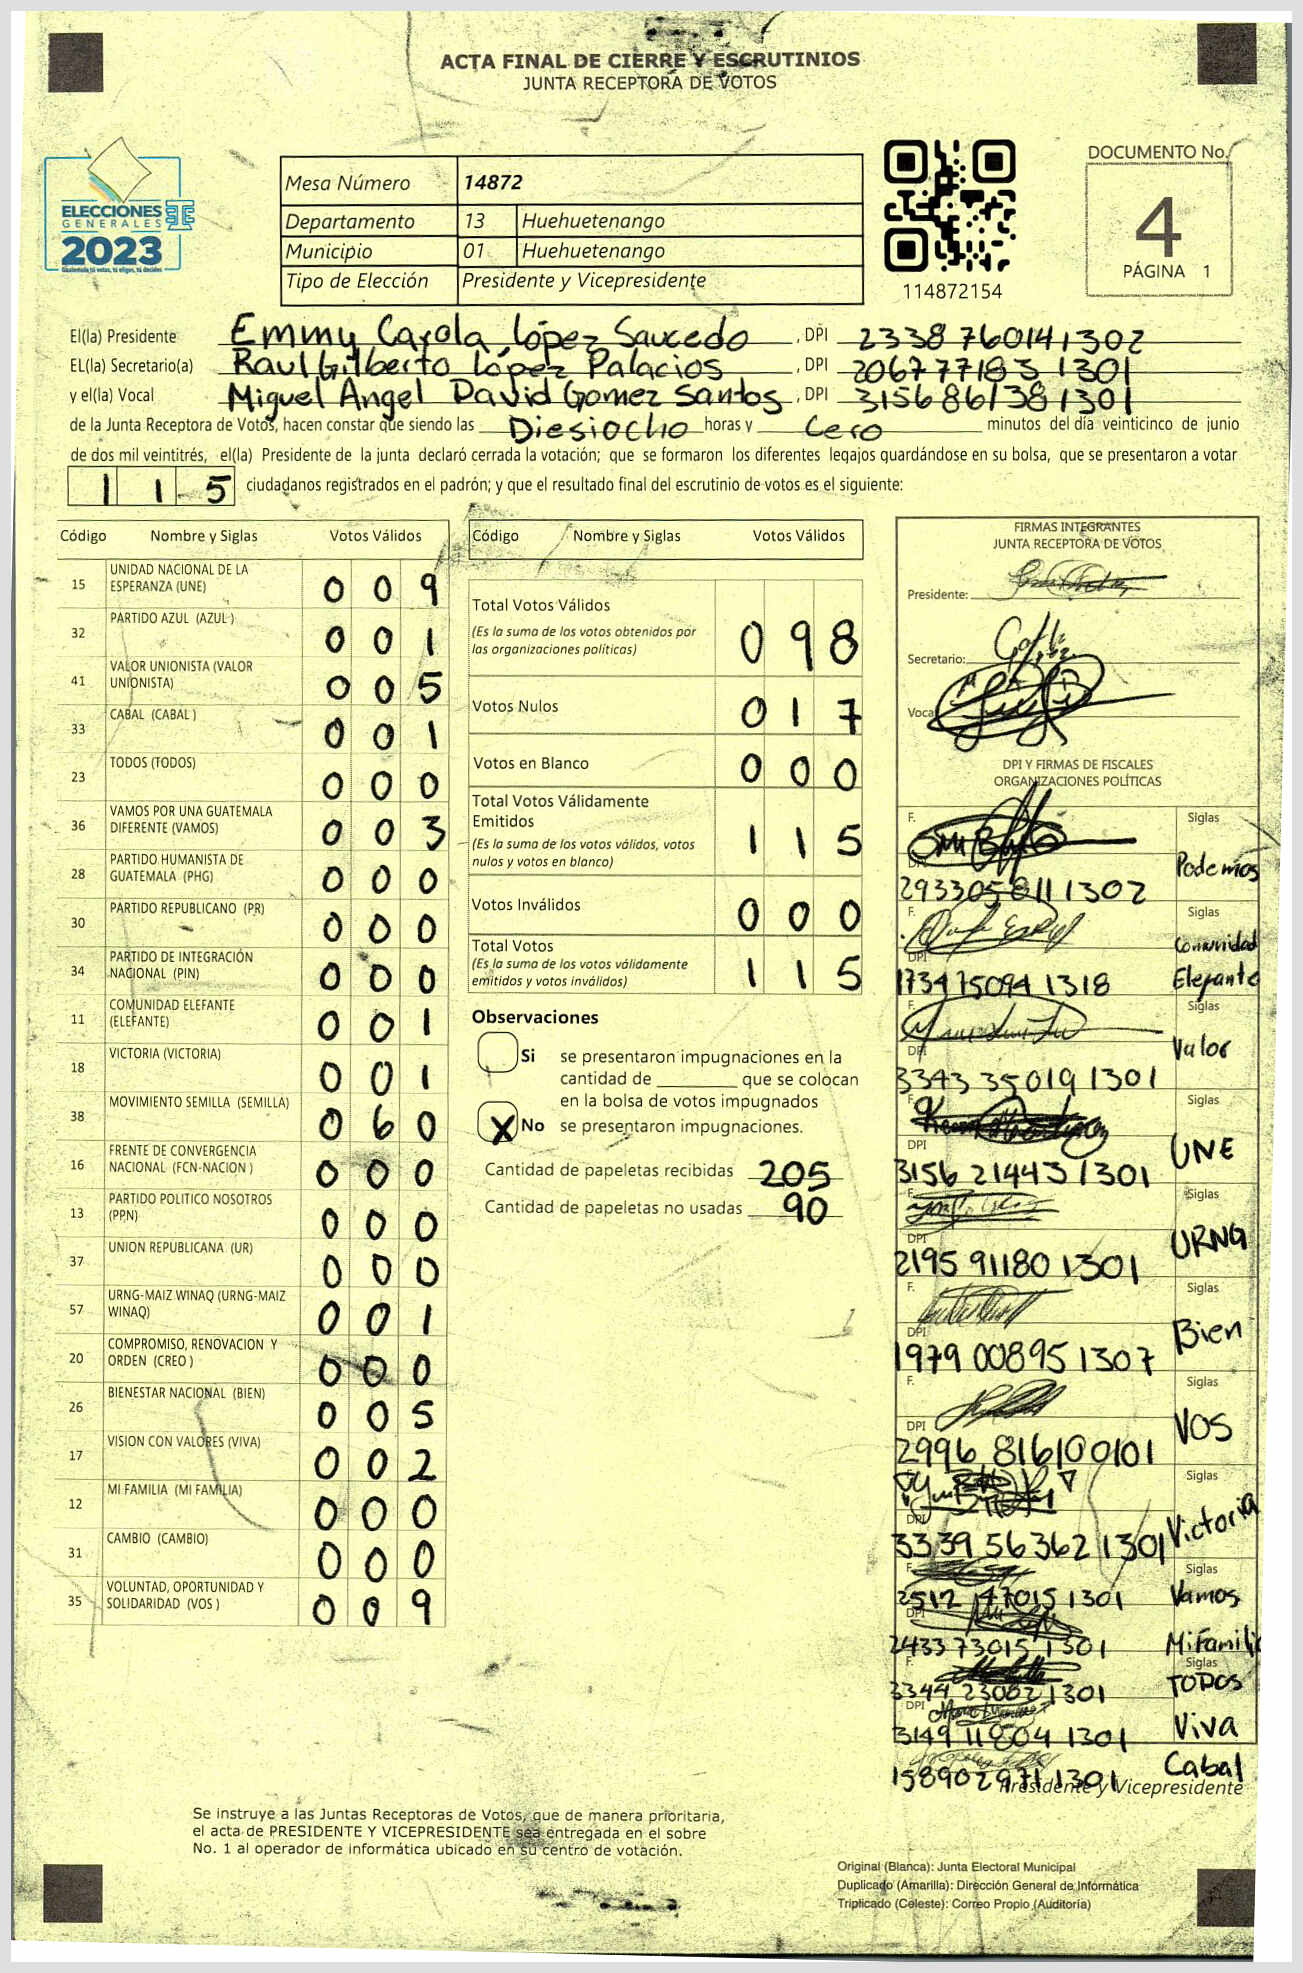 ACTA FINAL DE CIERRE Y ESCRUTINIOS
JUNTA RECEPTORA DE VOTOS
ELECCIONES
GENERALES
2023
Guatemala tú votas, tú eliges, tú decides
Mesa Número 14872
Departamento 13 Huehuetenango
Municipio 01 Huehuetenango
Tipo de Elección Presidente y Vicepresidente
114872154
DOCUMENTO No.
4
PÁGINA 1
El(la) Presidente Emmy Carola López Saucedo, DPI 2338 76014 1302
EL(la) Secretario(a) Raul Gilberto López Palacios, DPI 2067 77183 1301
y el(la) Vocal Miguel Angel David Gomez Santos, DPI 3156 86138 1301
de la Junta Receptora de Votos, hacen constar que siendo las Diesiocho horas y Cero minutos del día veinticinco de junio
de dos mil veintitrés, el(la) Presidente de la junta declaró cerrada la votación; que se formaron los diferentes legajos guardándose en su bolsa, que se presentaron a votar
1 1 5 ciudadanos registrados en el padrón; y que el resultado final del escrutinio de votos es el siguiente:
Código Nombre y Siglas Votos Válidos
15 UNIDAD NACIONAL DE LA ESPERANZA (UNE) 0 0 9
32 PARTIDO AZUL (AZUL) 0 0 1
41 VALOR UNIONISTA (VALOR UNIONISTA) 0 0 5
33 CABAL (CABAL) 0 0 1
23 TODOS (TODOS) 0 0 0
36 VAMOS POR UNA GUATEMALA DIFERENTE (VAMOS) 0 0 3
28 PARTIDO HUMANISTA DE GUATEMALA (PHG) 0 0 0
30 PARTIDO REPUBLICANO (PR) 0 0 0
34 PARTIDO DE INTEGRACIÓN NACIONAL (PIN) 0 0 0
11 COMUNIDAD ELEFANTE (ELEFANTE) 0 0 1
18 VICTORIA (VICTORIA) 0 0 1
38 MOVIMIENTO SEMILLA (SEMILLA) 0 6 0
16 FRENTE DE CONVERGENCIA NACIONAL (FCN-NACION) 0 0 0
13 PARTIDO POLITICO NOSOTROS (PPN) 0 0 0
37 UNION REPUBLICANA (UR) 0 0 0
57 URNG-MAIZ WINAQ (URNG-MAIZ WINAQ) 0 0 1
20 COMPROMISO, RENOVACION Y ORDEN (CREO) 0 0 0
26 BIENESTAR NACIONAL (BIEN) 0 0 5
17 VISION CON VALORES (VIVA) 0 0 2
12 MI FAMILIA (MI FAMILIA) 0 0 0
31 CAMBIO (CAMBIO) 0 0 0
35 VOLUNTAD, OPORTUNIDAD Y SOLIDARIDAD (VOS) 0 0 9
Código Nombre y Siglas Votos Válidos
Total Votos Válidos
(Es la suma de los votos obtenidos por las organizaciones políticas) 0 9 8
Votos Nulos 0 1 7
Votos en Blanco 0 0 0
Total Votos Válidamente Emitidos
(Es la suma de los votos válidos, votos nulos y votos en blanco) 1 1 5
Votos Inválidos 0 0 0
Total Votos
(Es la suma de los votos válidamente emitidos y votos inválidos) 1 1 5
Observaciones
Si se presentaron impugnaciones en la
cantidad de ________ que se colocan
en la bolsa de votos impugnados
X No se presentaron impugnaciones.
Cantidad de papeletas recibidas 205
Cantidad de papeletas no usadas 90
FIRMAS INTEGRANTES
JUNTA RECEPTORA DE VOTOS
Presidente:
Secretario:
Vocal
DPI Y FIRMAS DE FISCALES
ORGANIZACIONES POLÍTICAS
F. Siglas
DPI Podemos
2933058111302
F. Siglas
DPI Comunidad Elefante
1734 75094 1318
F. Siglas
DPI Valor
3343 35019 1301
F. Siglas
DPI UNE
3156 21443 1301
F. Siglas
DPI URNG
2195 91180 1301
F. Siglas
DPI Bien
1979 00895 1307
F. Siglas
DPI VOS
2996 81610 0101
F. Siglas
DPI Victoria
3339 56362 1301
F. Siglas
2512 47015 1301 Vamos
DPI
2433 73015 1301 Mi Familia
F. Siglas
3344 23002 1301 TODOS
DPI
3149 11804 1301 Viva
1589029711301 Cabal
Presidente y Vicepresidente
Se instruye a las Juntas Receptoras de Votos, que de manera prioritaria,
el acta de PRESIDENTE Y VICEPRESIDENTE sea entregada en el sobre
No. 1 al operador de informática ubicado en su centro de votación.
Original (Blanca): Junta Electoral Municipal
Duplicado (Amarilla): Dirección General de Informática
Triplicado (Celeste): Correo Propio (Auditoría)